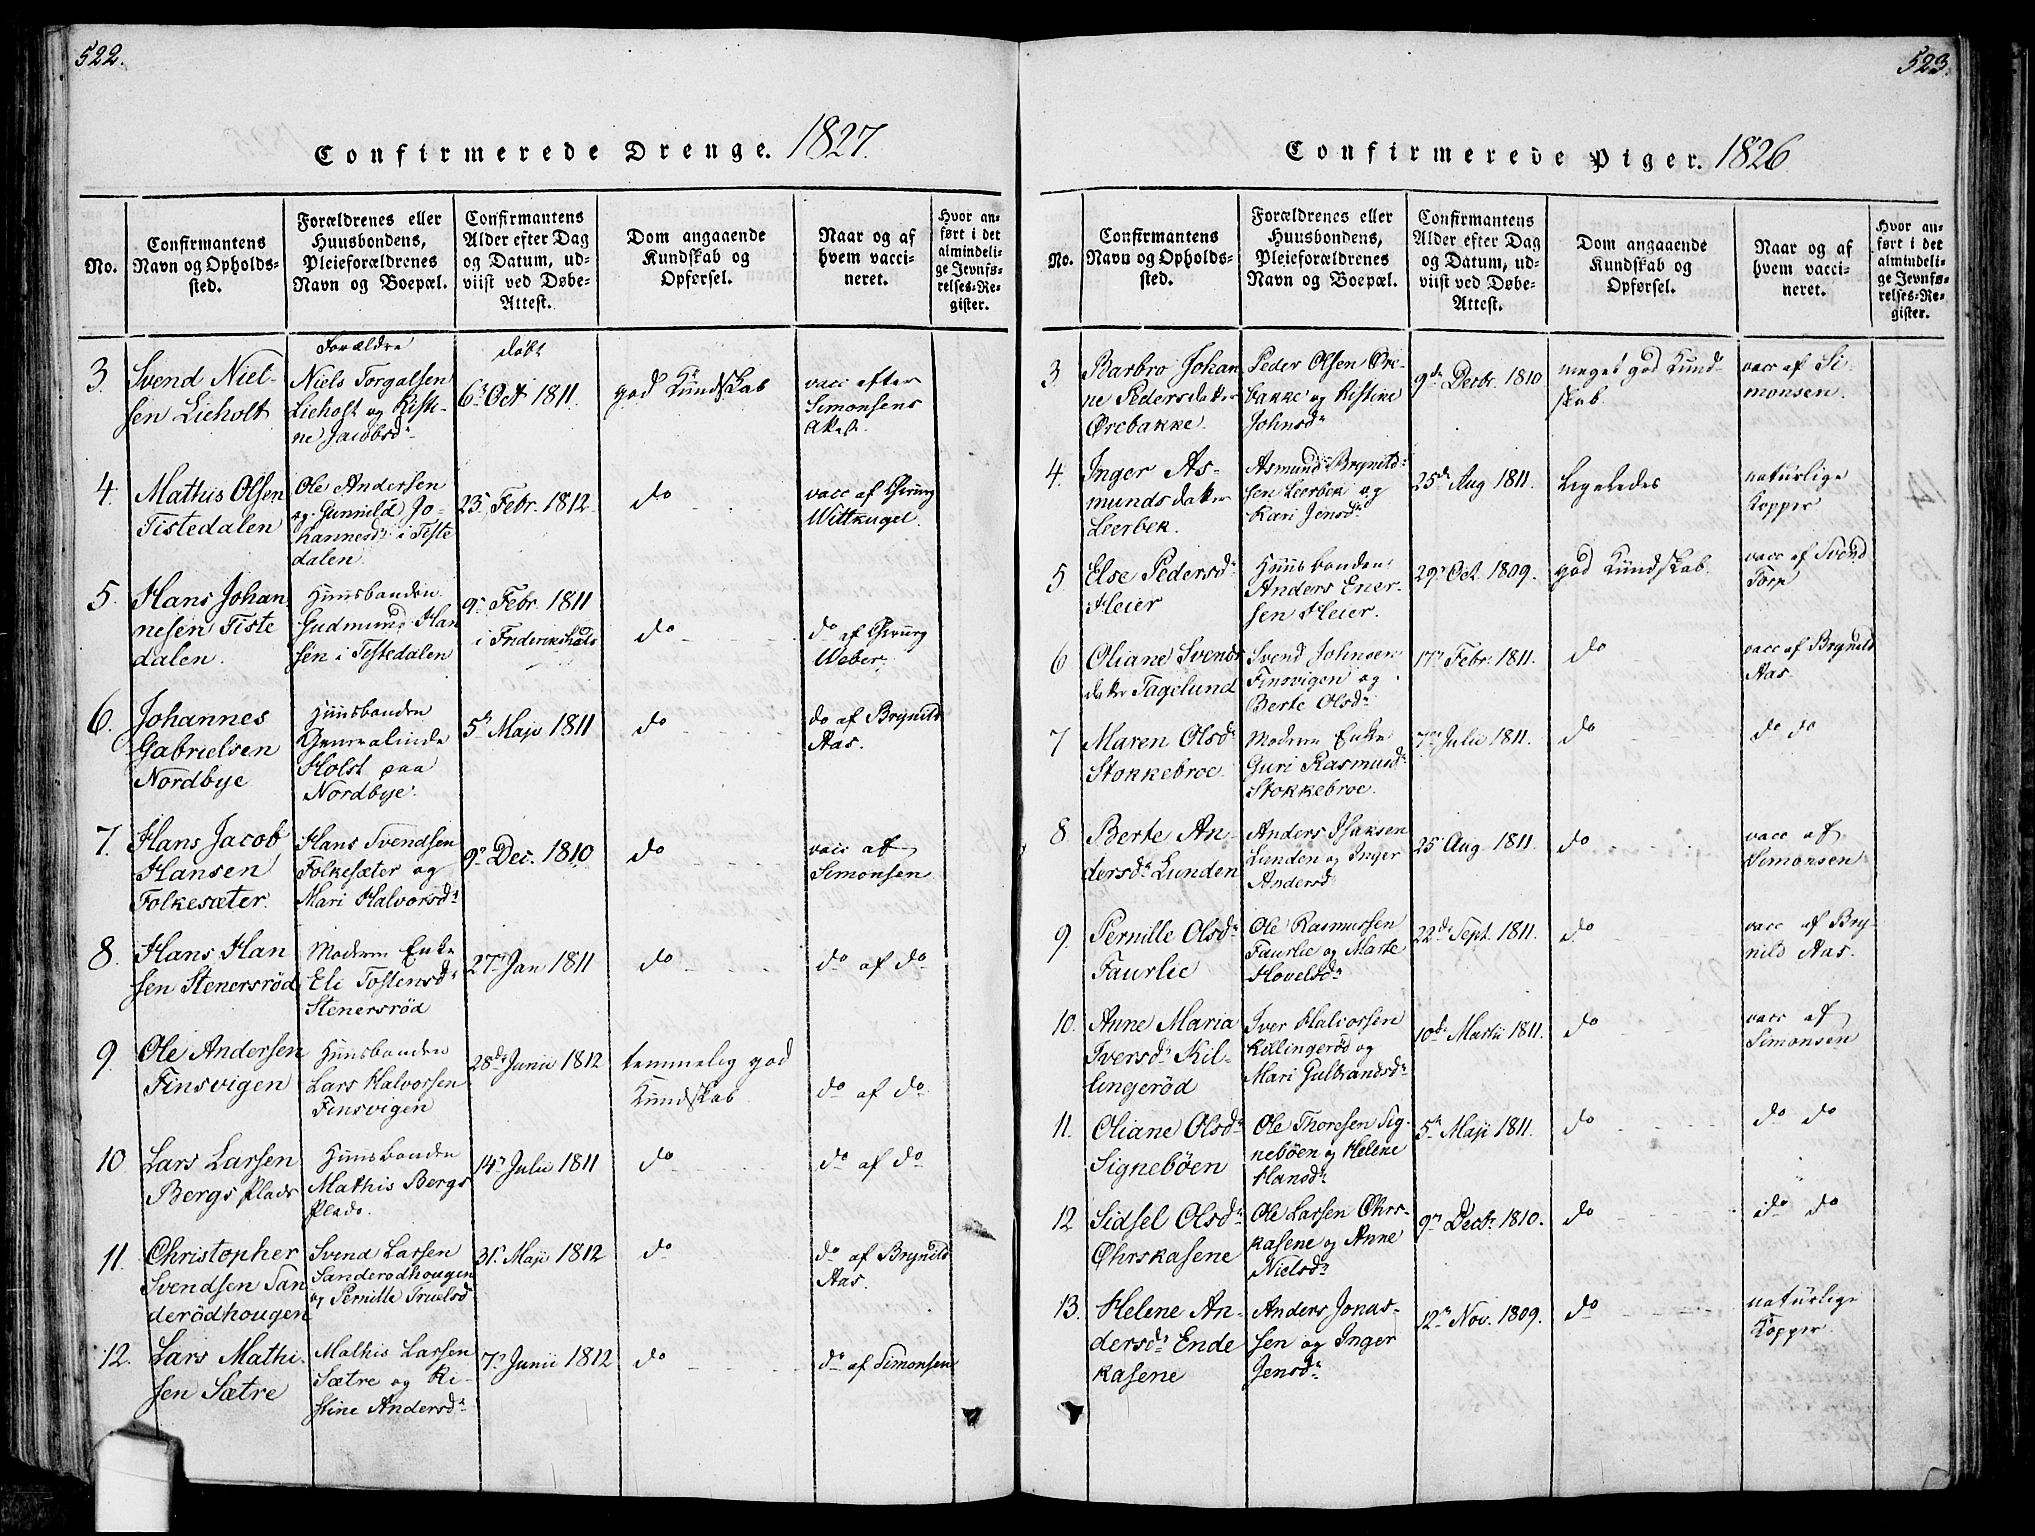 522.
Confirmerede Drenge. 1827.
No.
Confirmantens
Navn og Opholds-
sted.
Forældrenes eller
Huusbondens,
Pleieforældrenes
Navn og Boepæl.
Confirmantens
Alder efter Dag
og Datum, ud-
viist ved Døbe-
Attest.
Dom angaaende
Kundskab og
Opførsel.
Naar og af
hvem vacci-
neret.
Hvor an-
ført i det
almindeli-
ge Jevnfø-
relses-Re-
gister.
3.
Svend Niel-
sen Lieholt
Forældre
Niels Torgalsen
Lieholt og Kiste-
ne Jacobsdr
døbt
6 Oct 1811.
god Kundskab
vacc efter
Simonsens
Attest.
4.
Mathis Olsen
Tistedalen
Ole Andersen
og Gunnild Jo-
hannesdr i Tiste
dalen.
23 Febr. 1812.
do
vacc af Chirurg
Wittkugel.
5.
Hans Johan
nesen Tiste
dalen.
Huusbonden
Gudmund Han
sen i Tistedalen
9 Febr. 1811
i Frederikshald
do
do af Chirurg
Weber.
6.
Johannes
Gabrielsen
Nordbye
Huusbonden
Generalinde
Holst paa
Nordbye.
5 Maji 1811
do
do af Brynild
Aas.
7.
Hans Jacob
Hansen
Folkesæter.
Hans Svendsen
Folkesæter og
Mari Halvorsdr
9 Dec. 1810
do
vacc af
Simonsen
8.
Hans Han
sen Stenersrød
Moderen Enke
Eli Tostensdr
Stenersrød
27 Jan 1811
do
do af do
9.
Ole Andersen
Finsvigen
Huusbonden
Lars Halvorsen
Finsvigen
28de Junii 1812
temmelig god
Kundskab
do af do
10
Lars Larsen
Bergs Plads
Huusbonden
Mathis Bergs
Plads.
14 Julii 1811
do
do af do
11.
Christopher
Svendsen San
derødhougen
Svend Larsen
Sanderødhougen
og Pernille Truelsd
31 Maji 1812
do
do af Brynild
Aas.
12.
Lars Mathi-
sen Sætre
Mathis Larsen
Sætre og Ki-
stine Andersdr
7 Junii 1812
do
do af Simonsen
523.
Confirmerede Piger. 1826
No.
Confirmantens
Navn og Opholds-
sted.
Forældrenes eller
Huusbondens,
Pleieforældrenes
Navn og Boepæl.
Confirmantens
Alder efter Dag
og Datum, ud-
viist ved Døbe-
Attest.
Dom angaaende
Kundskab og
Opførsel.
Naar og af
hvem vacci-
neret.
Hvor an-
ført i det
almindeli-
ge Jevnfø-
relses-Re-
gister.
3
Barbro Johan
ne Pedersdatter
Ørebakke.
Peder Olsen Øre-
bakke og Kistine
Johnsdr
9de Decbr. 1810
meget god Kund-
skab
vacc af Si-
monsen.
4.
Inger As-
mundsdatter
Leerbek.
Asmund Brynild-
sen Leerbek og
Kari Jensdr
25de Aug 1811.
Ligeledes
naturlige
Kopper
5
Else Pedersdr
Heier
Huusbonden
Anders Ener-
sen Heier.
29 Oct. 1809.
god Kundskab.
vacc af Svend
Torp
6
Oliane Svends
datter Tagelund
Svend Johnsen
Finsvigen og
Berte Olsdr
17 Febr. 1811.
do
vacc af Brynild
Aas.
7
Maren Olsdr
Stokkebroe.
Moderen Enke
Guri Rasmusdr
Stokkebroe.
7 Julii 1811.
do
do do
8
Berte An-
dersdr Lunden
Anders Isaksen
Lunden og Inger
Andersd
25 Aug 1811.
do
vacc af
Simonsen
9.
Pernille Olsdr
Faurlie
Ole Rasmussen
Faurlie og Marte
Hovelsdr
22de Sept. 1811.
do
vacc af Bry-
nild Aas.
10.
Anne Maria
Iversdr Kil-
lingerød
Iver Halvorsen
Killingerød og
Mari Gulbrandsdr
10de Martii 1811.
do
vacc af
Simonsen
11.
Oliane Olsdr
Signebøen
Ole Thoresen Sig-
nebøen og Helene
Hansdr
5 Maji 1811.
do
do do
12
Sidsel Olsdr
Ohrskasene
Ole Larsen Ohrs-
kasene og Anne
Nielsdr
9 Decbr. 1810.
do
do do
13.
Helene An-
dersdr Ende
kasene
Anders Jonas-
sen og Inger
Jensdr
12 Nov. 1809.
do
naturlige
Kopper.